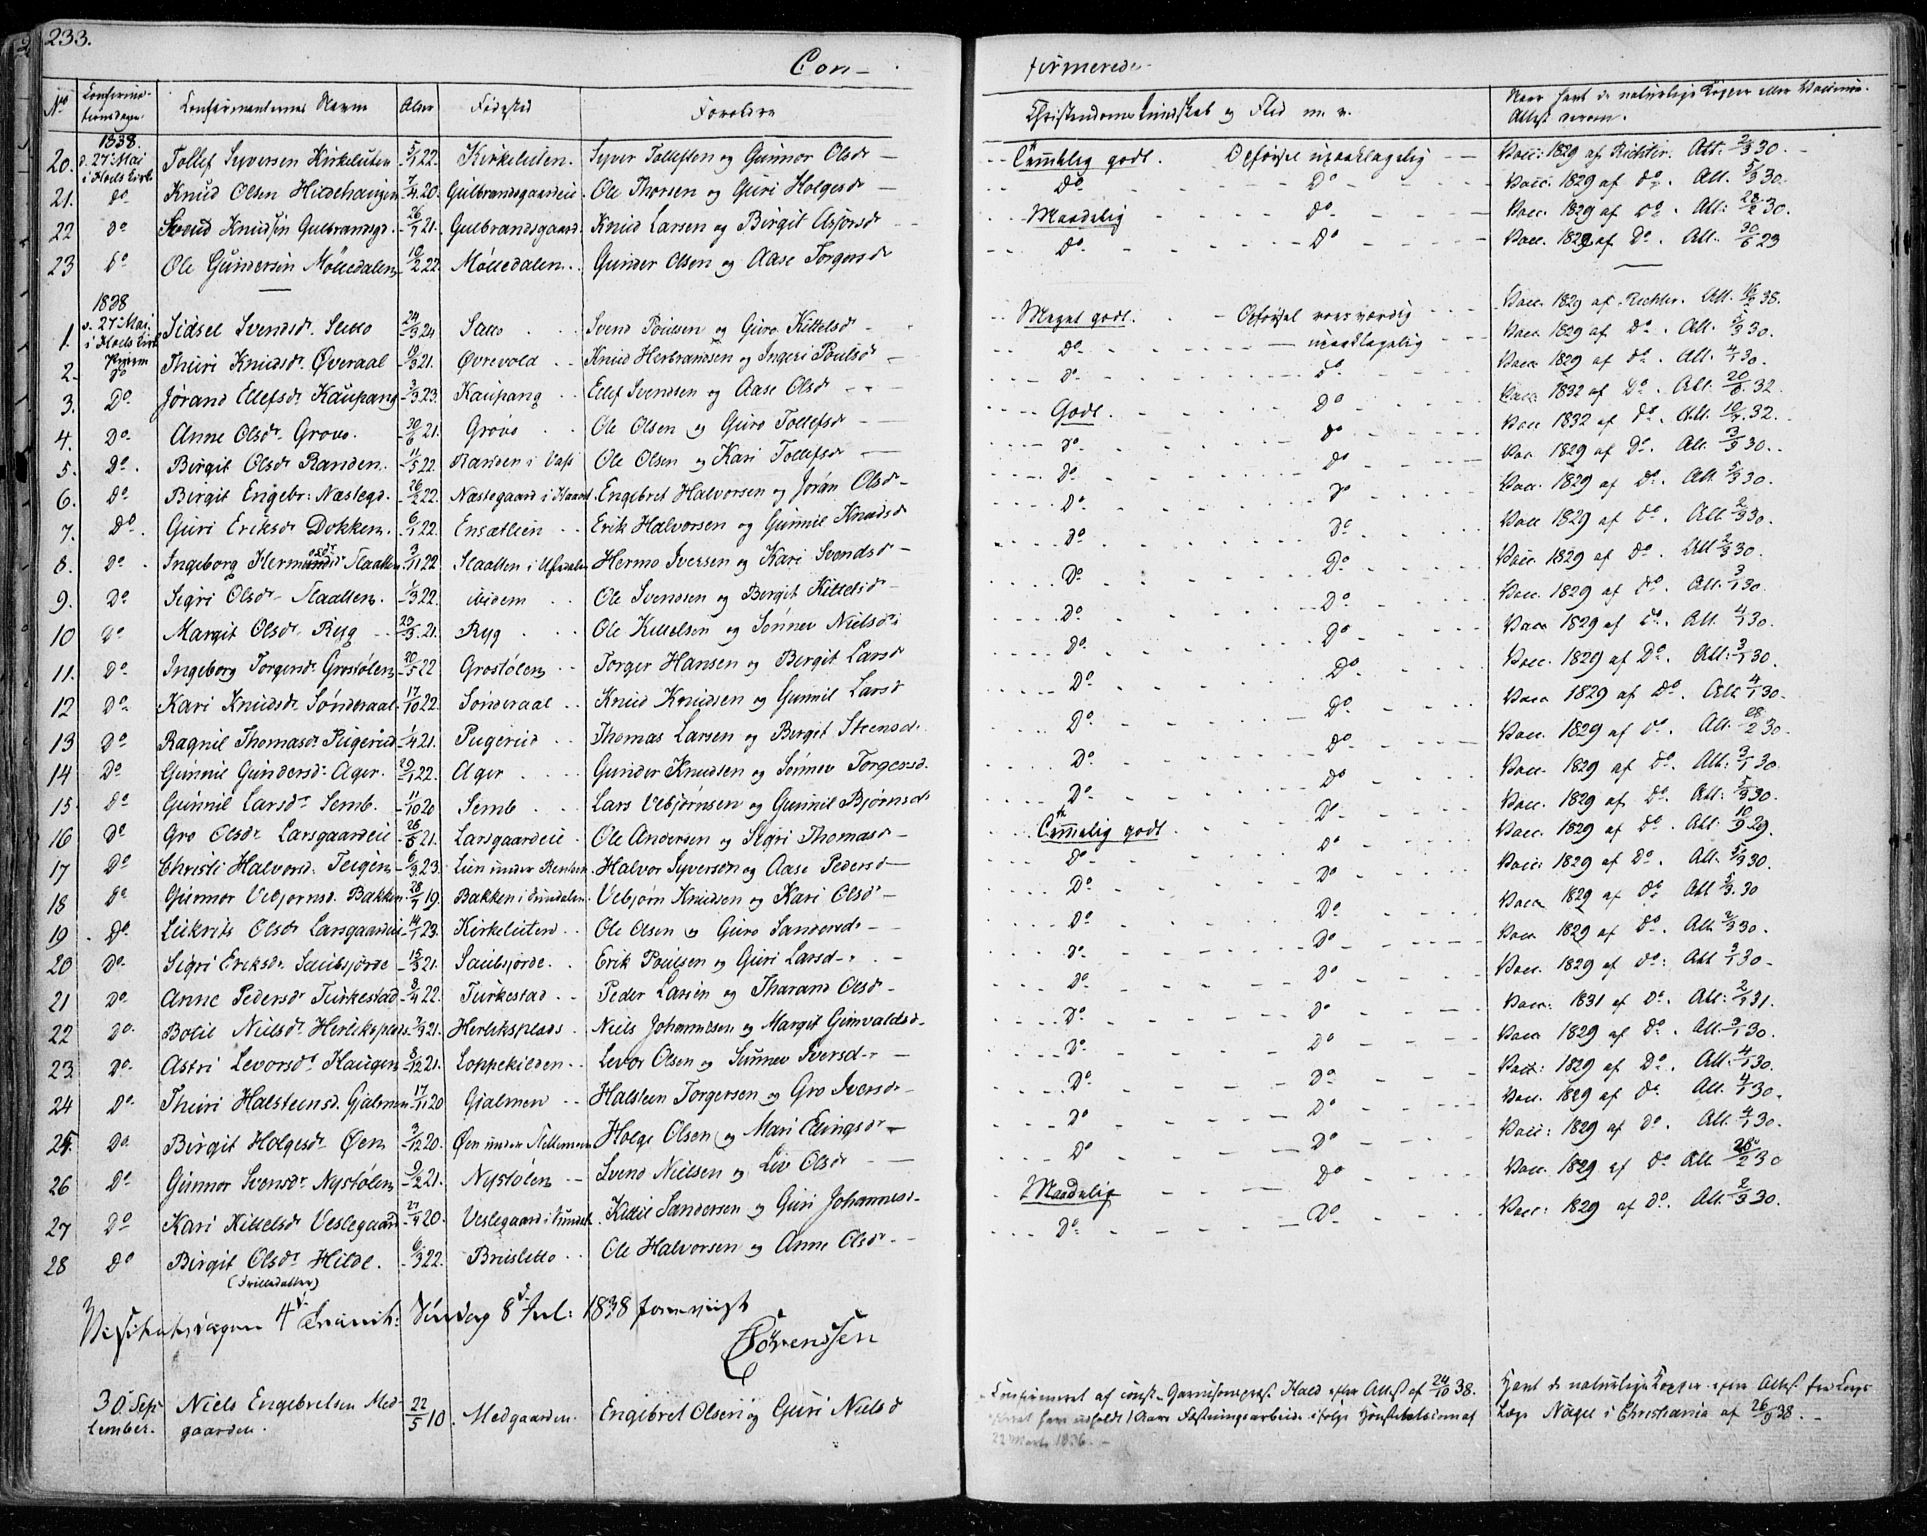 233.
Con- firmerede
No Confirmations Dagen Confirmanternes Navne Alder Fødested Forældre Christendoms Kundskab og Flid m. v. Naar havt de naturlige Kopper eller Vaccinations Attest derom.
1838.
20. d. 27de Mai i Hols Kirke Tollef Syversen Kirkeluten 5/1 22. Kirkeluten. Syver Tollefsen og Gunnor Olsdr Temmelig godt. Opførsel upaaklagelig Vacc: 1829 af Richter. Att. 2/3 30.
21. do Knud Olsen Hildehaugen 7/4 20. Gulbrandsgaardeie. Ole Thorsen og Guri Holgesdr Do Do Vacc. 1829 af do. Att. 5/3 30.
22 do Svend Knudsen Gulbrandsgd. 26/7 21. Gulbrandsgaard. Knud Larsen og Birgit Asjorsdr Maadelig Do Vacc. 1829 af Do. Att: 28/2 30.
23 do Ole Gundersen Mølledalen 16/2 22. Mølledalen. Gunder Olsen og Aase Torgersdr Do Do Vacc. 1829 af Do. Att. 30/6 29
1838
1. d. 27de Mai i Hols Kirke Sidsel Svendsdr. Sætto 24/3 24 Sætto Svend Poulsen og Guro Kittelsdr Meget godt. Opførsel roesværdig Vacc. 1829 af Richter. Att. 16/3 38.
2. Do Thuri Knudsdr. Øveraal 9/3 21. Øvrevold Knud Herbrandsen og Ingeri Poulsdr Do upaaklagelig Vacc. 1829 af Do. Att. 5/3 30.
3. Do Jørand Ellefsdr. Kaupang 3/3 23. Kaupang Ellef Svendsen og Aase Olsdr Do Do Vacc. 1829 af do. Att. 4/1 30.
4. Do Anne Olsdr. Grovo. 20/6 21. Grovo Ole Olsen og Guro Tollefsdr Godt. Do Vacc. 1832 af Do. Att. 20/6 32.
5. Do. Birgit Olsdr. Randen. 11/5 22. Randen i Vats Ole Olsen og Kari Tollefsdr Do Do Vacc. 1832 af do. Att. 10/7 32.
6. Do Birgit Engebr: Næstegd. 26/2 22. Næstegaard i Haavet Engebret Halvorsen og Jørån Olsdr Do Do Vac. 1829 af Do. Att. 3/3 30.
7. Do. Guri Eriksdr Dokken. 6/1 22. Ensætlein Erik Halvorsen og Gunnil Knudsdr Do Do Vacc. 1829 af Do. Att. 5/3 30.
8. Do Ingeborg Hermosdr Slaatten 3/11 22. Slaatten i Ustedalen Hermo Iversen og Kari Svendsdr Do Do Vacc. 1829 af do. Att 2/3 30.
9. Do Sigri Olsdr. Slaatten. 1/3 22. ibidem Ole Svendsen og Birgit Kittelsdr Do Do Vacc. 1829 af do. Att 2/3 30.
10 Do Margit Olsdr. Ryg 29/3 21. Ryg Ole Kittelsen og Sønnev Nielsdr Do Do Vacc. 1829 af do. Att. 3/1 30.
11. Do Ingeborg Torgersdr. Grostølen 20/5 22 Grostølen Torger Hansen og Birgit Larsdr Do Do Vacc. 1829 af do. Att. 4/1 30.
12 Do Kari Knudsdr. Sønderaal 17/10 22. Sønderaal Knud Knudsen og Gunnil Larsdr Do Do Vacc. 1829 af Do. Att: 3/1 30.
13 Do Ragnil Thomasdr. Pugerud 1/4 21. Pugerud Thomas Larsen og Birgit Steensdr Do Do Vacc. 1829 af Do. Att 4/1 30.
14 Do Gunnil Gundersdr. Ager. 29/1 22. Ager Gunder Knudsen og Sønnev Torgersdr. Do Do Vacc. 1829 af do. Att. 28/2 30.
15. Do Gunnil Larsdr Semb. 11/10 20 Semb Lars Vebjørnsen og Gunnil Bjørnsdr Do Do Vacc. 1829 af Do. Att: 3/1 30.
16 Do Gro Olsdr Larsgaardeie 26/6 21. Larsgaardeie Ole Andersen og Sigri Thomasdr Temmelig godt Do Vacc. 1829 af Do. Att: 5/3 30.
17 Do Christi Halvord. Teigen 6/3 23. Lien under Rensleen Halvor Syversen og Aase Pedersd Do Do Vacc. 1829 af do. Att: 10/9 29.
18 do Gunnor Vebjørnsd. Bakken 28/1 19. Bakken i Sundalen. Vebjørn Knudsen og Kari Olsdr Do Do Vacc: 1829 af Do. Att. 5/3 30.
19 Do Leikrits Olsdr Larsgaardeie 14/1 23. Kirkeluten Ole Olsen og Guro Sandersdr Do Do Vacc. 1829 af do Att 5/3 30
20 Do. Sigri Eriksdr. Sausjorde 15/3 21. Sausjorde. Erik Poulsen og Guri Larsd Do Do Vacc 1829 af do. Att. 2/3 30.
21 Do. Anne Pedersdr Turkestad 8/4 22. Turkestad Peder Larsen og Tharand Olsdr Do Do Vacc. 1829 af do: Att 3/1 30.
22 Do. Bolil Nielsdr. Herleksplads 7/3 21. Herleksplads Niels Johannesen og Margit Gunvaldsdr. Do Do Vacc: 1831 af Do. Att: 2/1 31.
23 Do. Astri Levorsdr. Haugen 8/12 21. Loppekilden Levor Olsen og Sunnev Iversdr Do Do Vacc 1829 af do. Att. 3/1 30.
24 Do. Thuri Halsteensd. Gjalmen 17/11 20 Gjalmen Halsteen Torgersen og Gro Iversdr Do Do Vacc: 1829 af Do. Att. 4/1 30.
25. Do. Birgit Holgesdr Øen 3/12 20. Øen under Nellemoen Holge Olsen og Mari Elingsdr Do Do Vacc. 1829 af do. Att. 4/1 30.
26 Do Gunnor Svensdr Nystølen 9/2 21. Nystølen Svend Nielsen og Liv Olsdr Do Do Vacc: 1829 af do. Att. 4/1 30.
27 Do Kari Kittelsdr Veslegaard 27/4 20. Veslegaard i Sundet Kittil Sandersen og Guri Johannesdr. Maadelig Do Vacc. 1829 af do Att. 28/2 30
28 Do Birgit Olsdr. Hilde. 6/3 22. Brusletto Ole Halvorsen og Anne Olsdr. Do Do Vacc: 1829 af do. Att. 2/3 30.
(Trilledatter)
Visitatsdagen 4de Trinit: Søndag 8de Jul: 1838 foreviist
Sørenssen
30 September. Niels Engebretsen Medgaarden. 22/5 10. Medgaarden. Engebret Olsen og Guri Nielsd Confirmeret af const. Garnisonspræst Hald efter Attest af 24/10 38. Havt de naturlige Kopper efter Attest fra Corps
Læge Nagel i Christiania af 26/9 38.
22 Marts 1836.